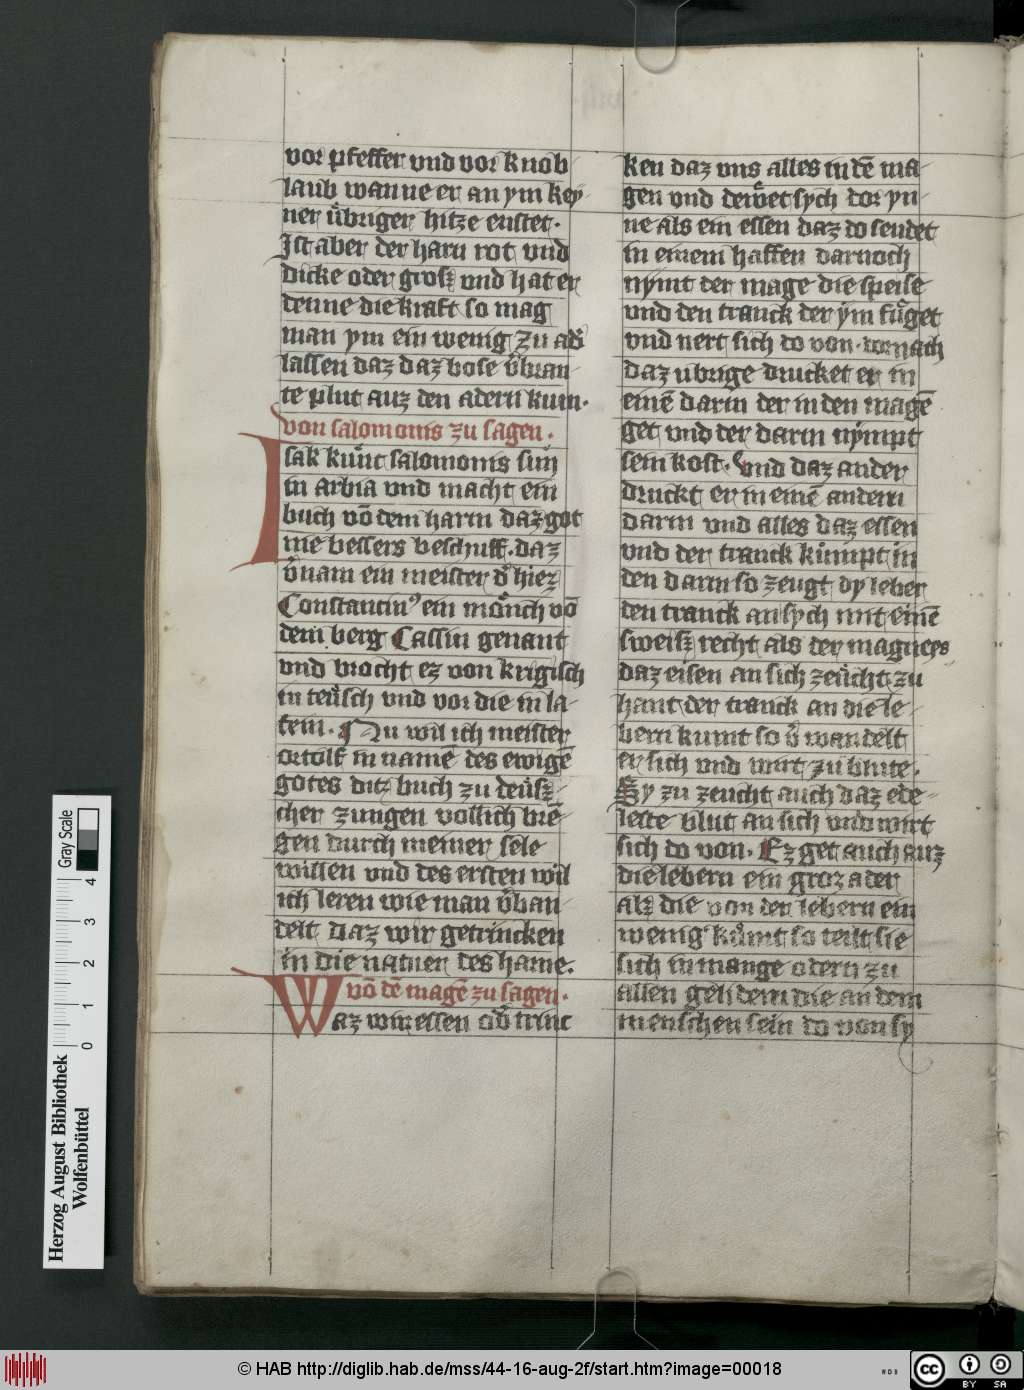 vor pfeffer vnd vor knob
laub wanne er an ym key
ner ůbriger hitze enstet.
Ist aber der harn rot vnd
dicke oder grosz vnd hat er
denne die kraft so mag
man ym ein wenig zu ad᷑
lassen daz daz bose v᷑bran
te plut auz den adern kum.
von salomonis zu sagen.
Isak kůnc salomonis sun
in arbia vnd macht ein
buch vō dem harm daz got
nie bessers beschuff. daz
v᷑nam ein meister d᷑ hiez
Constantinꝰ ein mǒnch vō
dem berg Cassin genant
vnd brocht ez von krigisch
in teůsch vnd vor die in la
tein. Nu wil ich meister
ortolf in namē des ewigē
gotes ditz buch zu deůsz
cher zungen vollich brē
gen durch meiner sele
willen vnd des ersten wil
ich leren wie man v᷑ban
delt daz wir getrincken
in die natuer des harne.
vō dē magē zu sagen.
Waz wir essen od᷑ trinc
ken daz vns alles in dē ma
gen vnd dewet sych dor yn
ne als ein essen daz do seudet
in einem haffen darnoch
nymt der mage die speise
vnd den tranck der ym fůget
vnd nert sich do von. dornach
daz ubrige drucket er in
einē darm der in den magē
get vnd der darm nympt
sein kost. vnd daz ander
druckt er in einē andern
darm vnd alles daz essen
vnd der tranck kůmpt in
den darm so zeugt dy leber
den tranck an sych mit einē
sweisz recht als der magneys
daz eisen an sich zeůcht zu
hant der tranck an die le
bern kumt so v᷑ wandelt
er sich vnd wirt zu blute.
Sy zu zeucht auch daz ede
leste blut an sich vnd wirt
sich do von. Ez get auch auz
die lebern ein groz ader
alz die von der lebern ein
wenig kůmt so teilt sie
sich in mange odern zu
allen gelidern die an dem
menschen sein do von sy
Herzog August Bibliothek
Wolfenbüttel
Gray Scale
0 1 2 3 4
© HAB http://diglib.hab.de/mss/44-16-aug-2f/start.htm?image=00018
WDB
cc BY SA